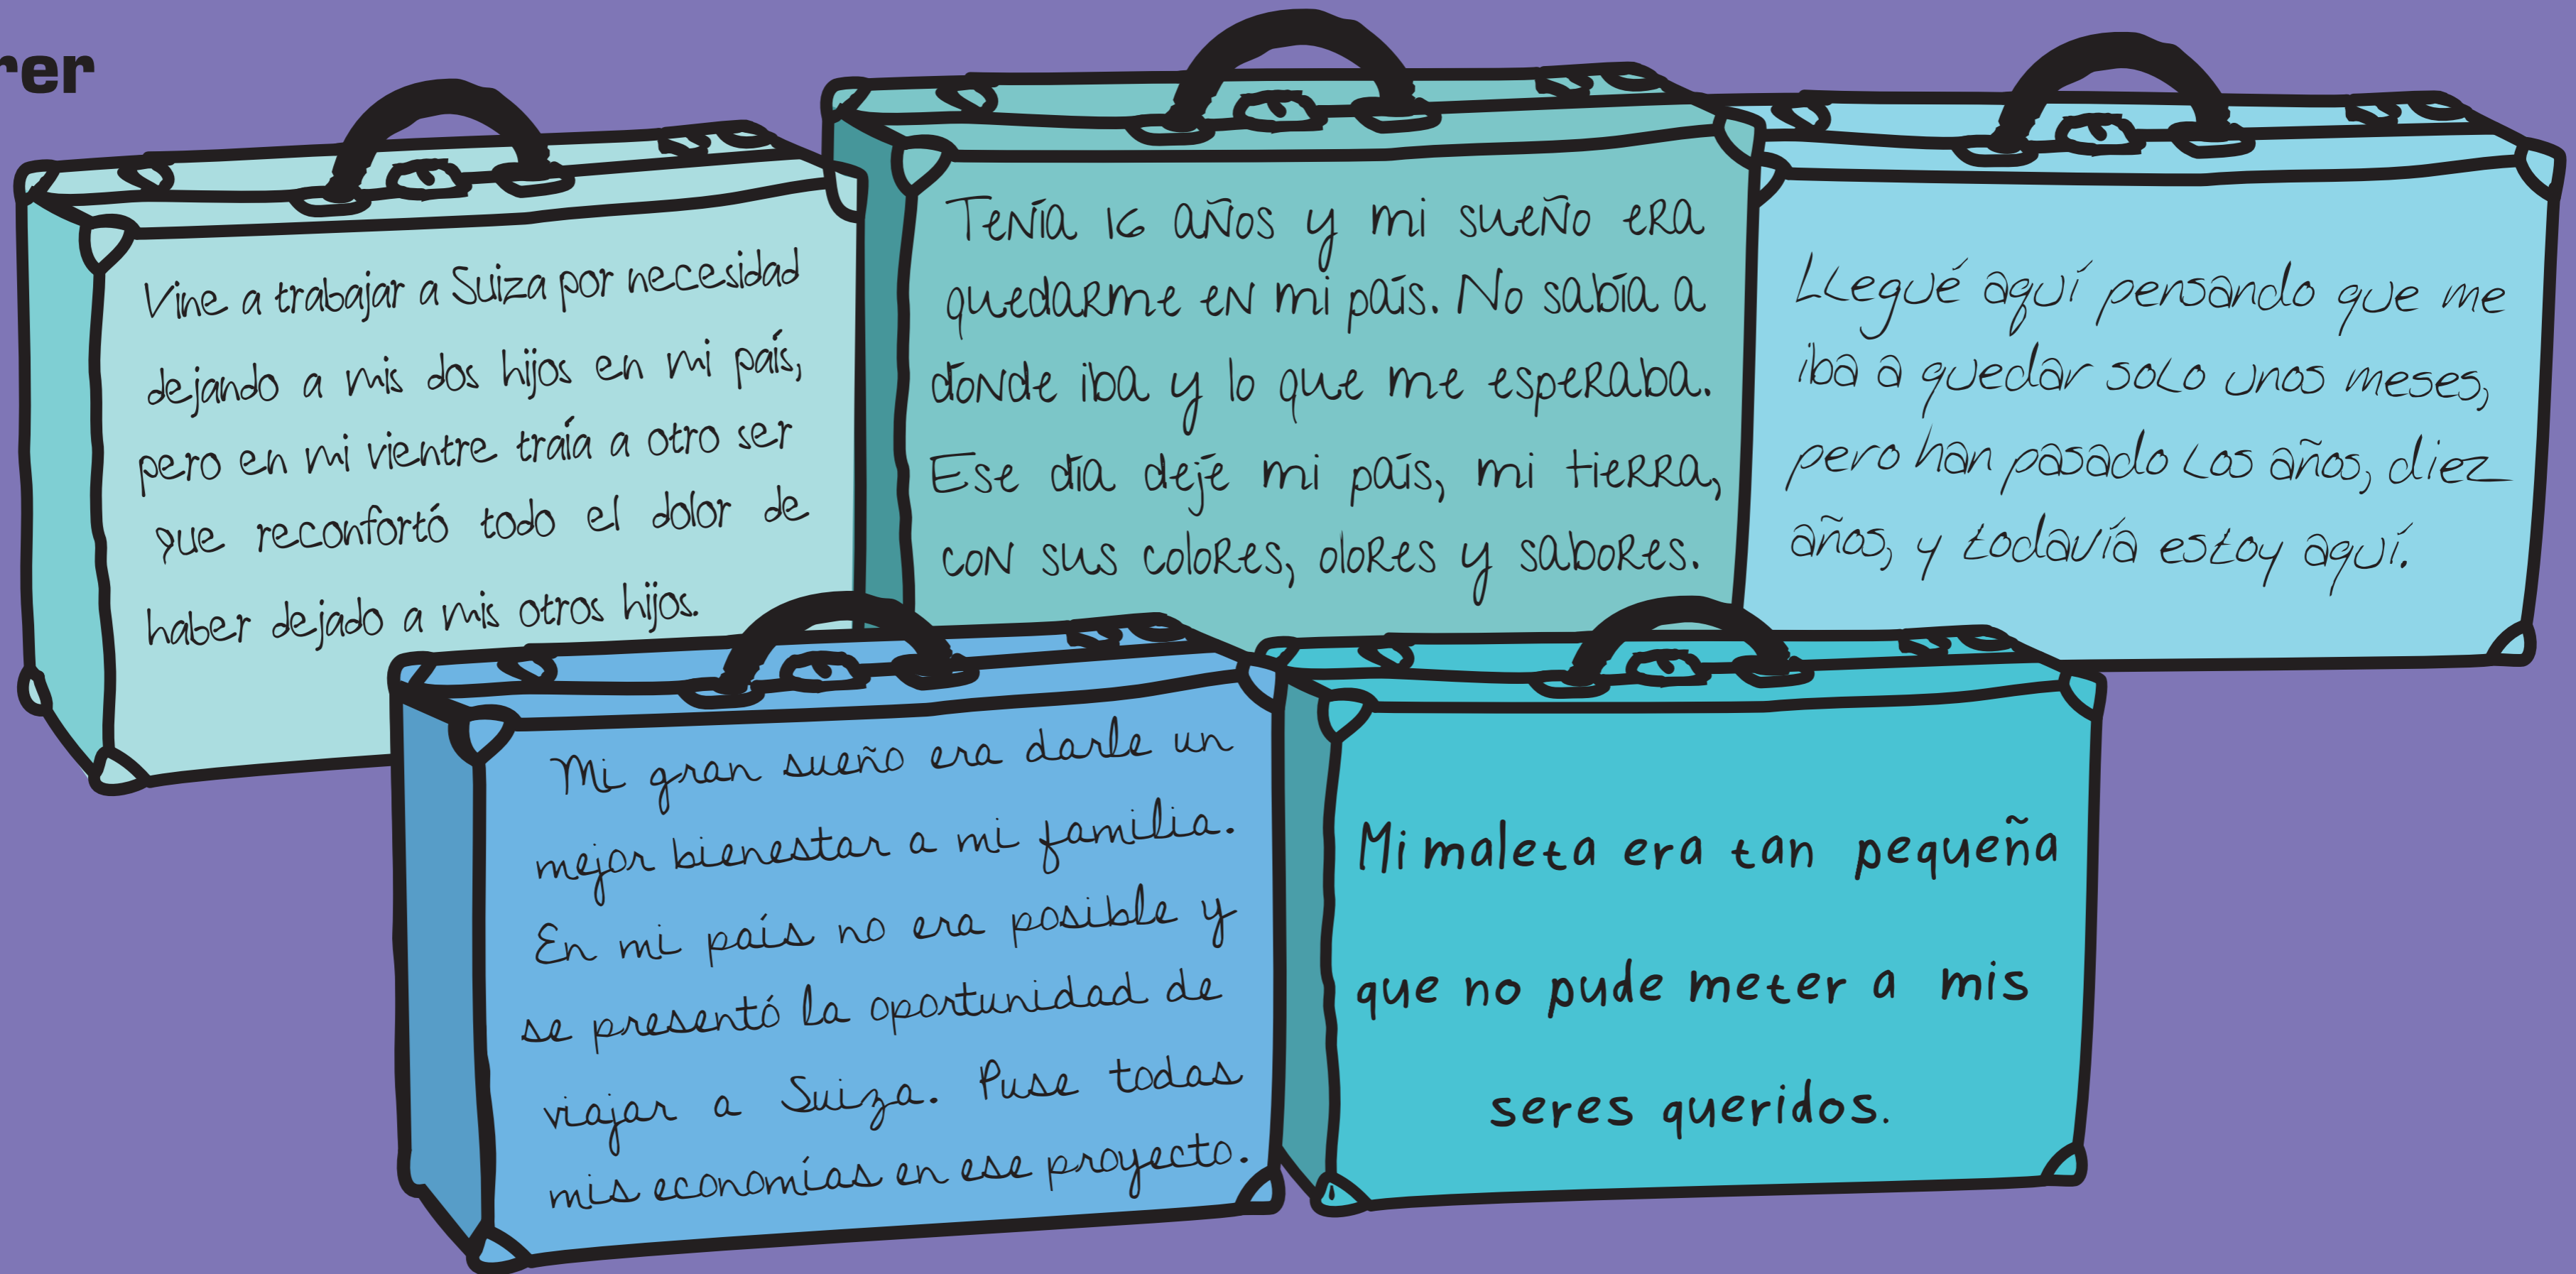 rer
Vine a trabajar a Suiza por necesidad
dejando a mis dos hijos en mi país,
pero en mi vientre traía a otro ser
que reconfortó todo el dolor de
haber dejado a mis otros hijos.
Tenía 16 años y mi sueño era
quedarme en mi país. No sabía a
dónde iba y lo que me esperaba.
Ese día dejé mi país, mi tierra,
con sus colores, olores y sabores.
Llegué aquí pensando que me
iba a quedar solo unos meses,
pero han pasado los años, diez
años, y todavía estoy aquí.
Mi gran sueño era darle un
mejor bienestar a mi familia.
En mi país no era posible y
se presentó la oportunidad de
viajar a Suiza. Puse todas
mis economías en ese proyecto.
Mi maleta era tan pequeña
que no pude meter a mis
seres queridos.